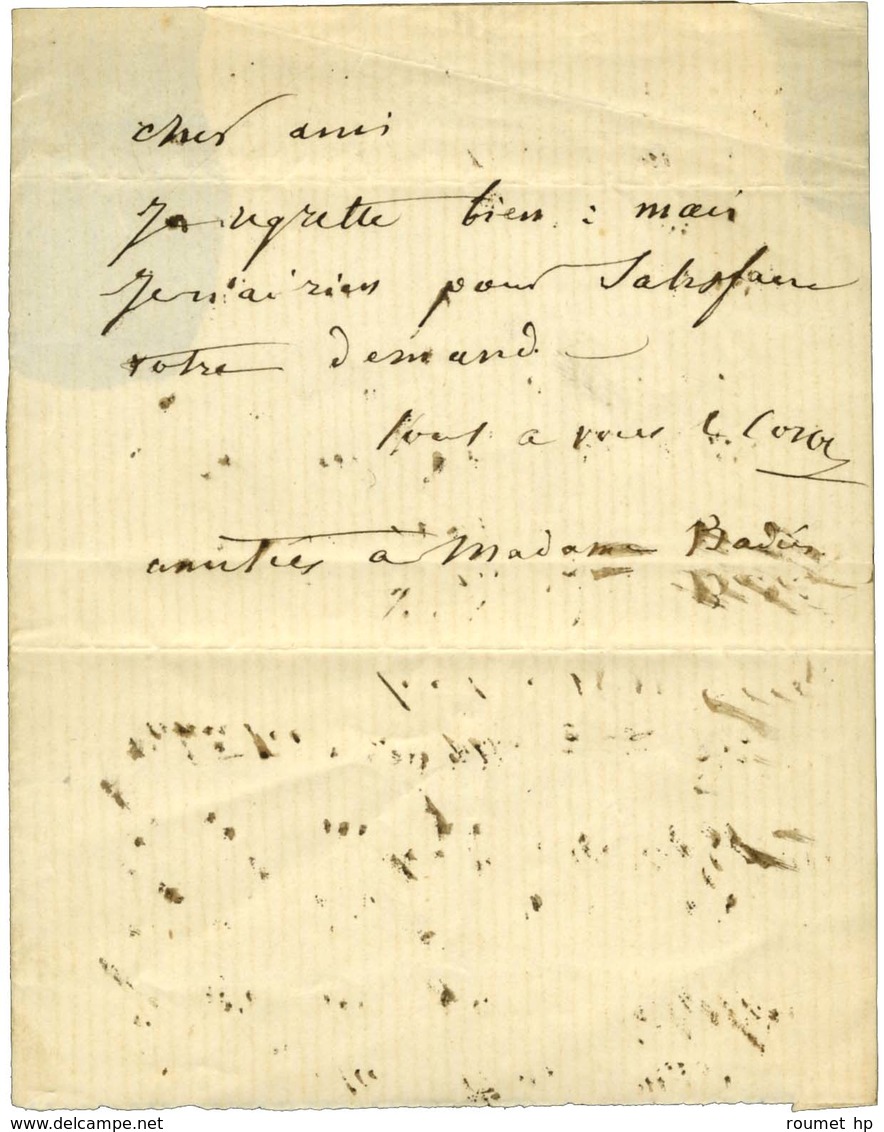 cher ami
Je regrette bien : mais
Je n'ai rien pour Satisfaire
votre demande
tout a vous C. Corot
amitiés à Madame Badin
roumet hp
www.delcampe.net